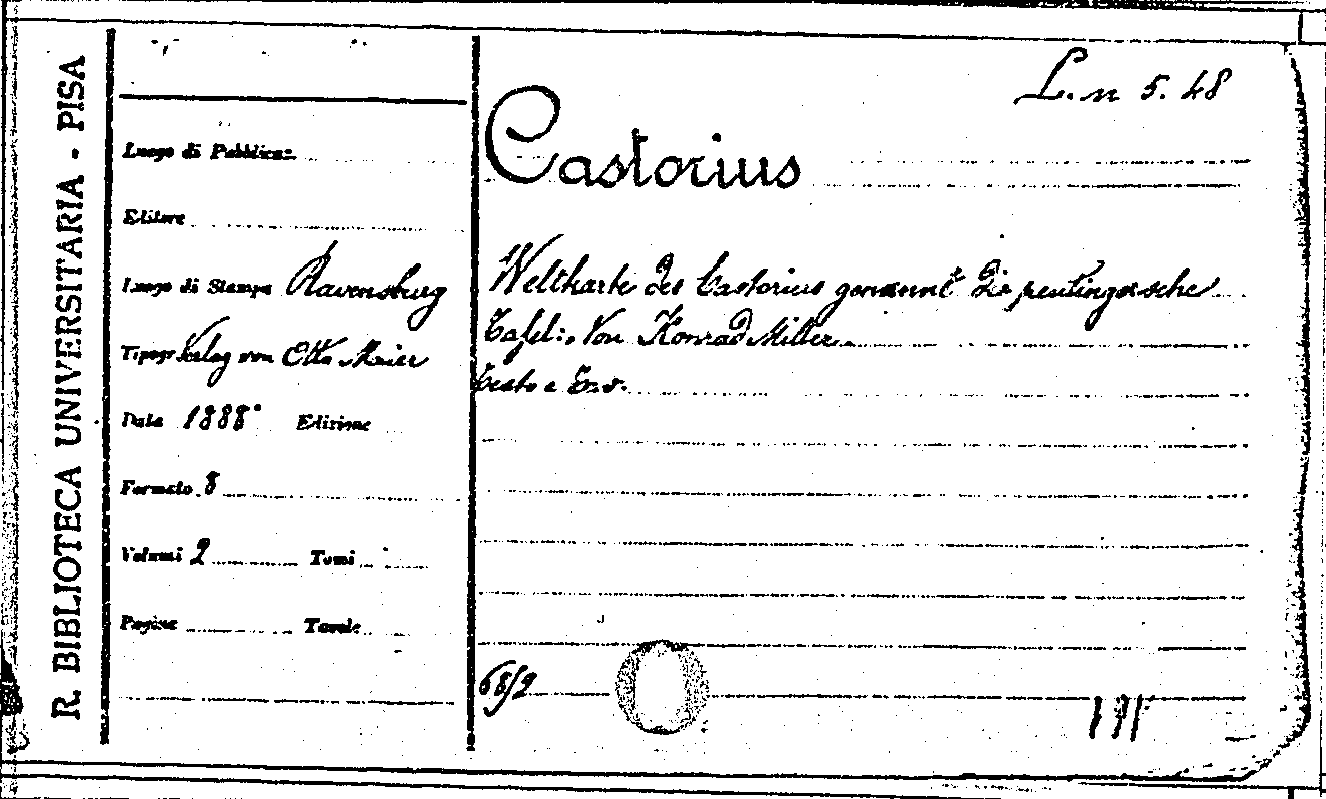 R. BIBLIOTECA UNIVERSITARIA - PISA
L. n 5. 48
Castorius
Luogo di Pubblicaz.
Editore
Luogo di Stampa Ravensburg
Tipogr. Verlag von Otto Maier
Data 1888 Edizione
Formato 8
Volumi 2 Tomi
Pagine Tavole
Weltkarte des Castorius genannt die peutingersche
Tafel: Von Konrad Miller.
Testo e
68/2